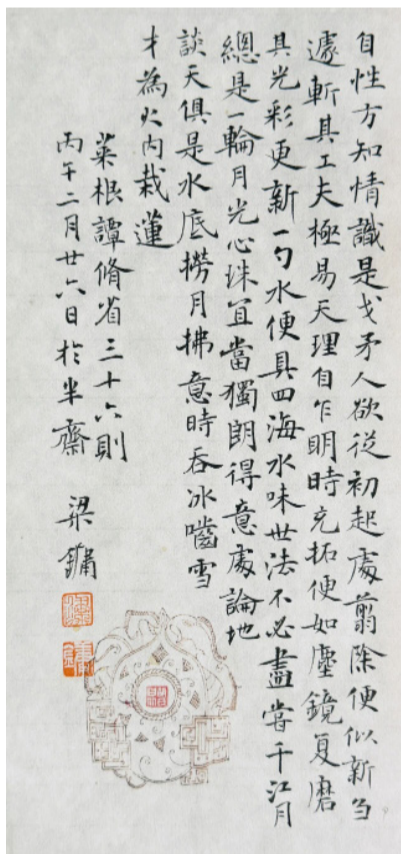 自性方知情識是戈矛人欲從初起處翦除便似新芻
遽斬其工夫極易天理自乍明時充拓便如塵鏡复磨
其光彩更新一勺水便具四海水味世法不必盡嘗千江月
總是一輪月光心珠宜當獨朗得意處論地
談天俱是水底撈月拂意時吞冰嚙雪
才為火內栽蓮
菜根譚脩省三十六則
丙午二月廿六日於半齋 梁鏞